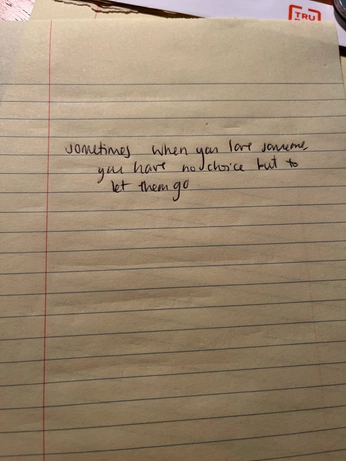 TRU
sometimes when you love someone,
you have no choice but to
let them go